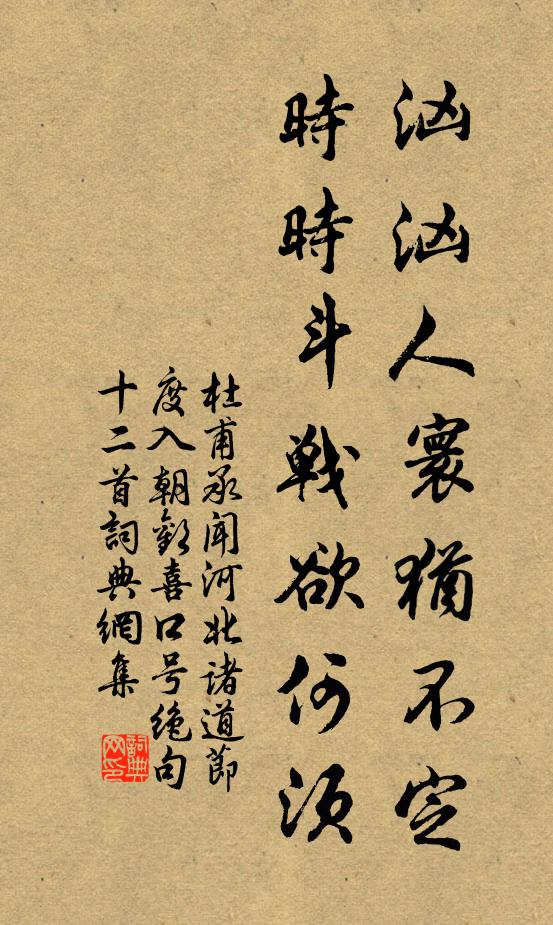 汹汹人寰犹不定
時時斗戰欲何須
杜甫承闻河北诸道節
度入朝歡喜口号绝句
十二首詞典網集
詞典
网印